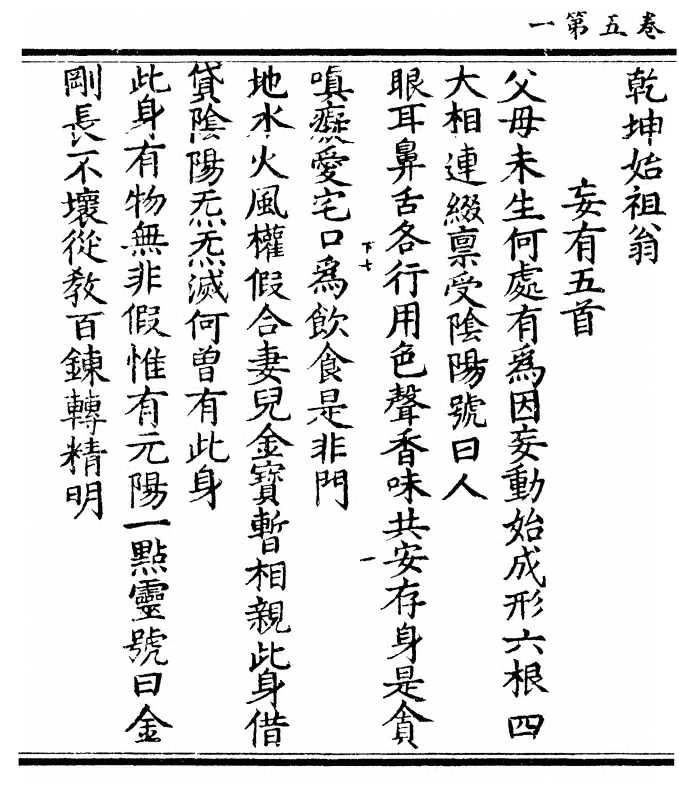 卷五第一
乾坤始祖翁
妄有五首
父母未生何處有爲因妄動始成形六根四
大相連綴禀受陰陽號曰人
眼耳鼻舌各行用色聲香味共安存身是貪
嗔癡愛宅口爲飲食是非門
下七
一
地水火風權假合妻兒金寶暫相親此身借
貸陰陽炁炁滅何曾有此身
此身有物無非假惟有元陽一點靈號曰金
剛長不壞從教百鍊轉精明